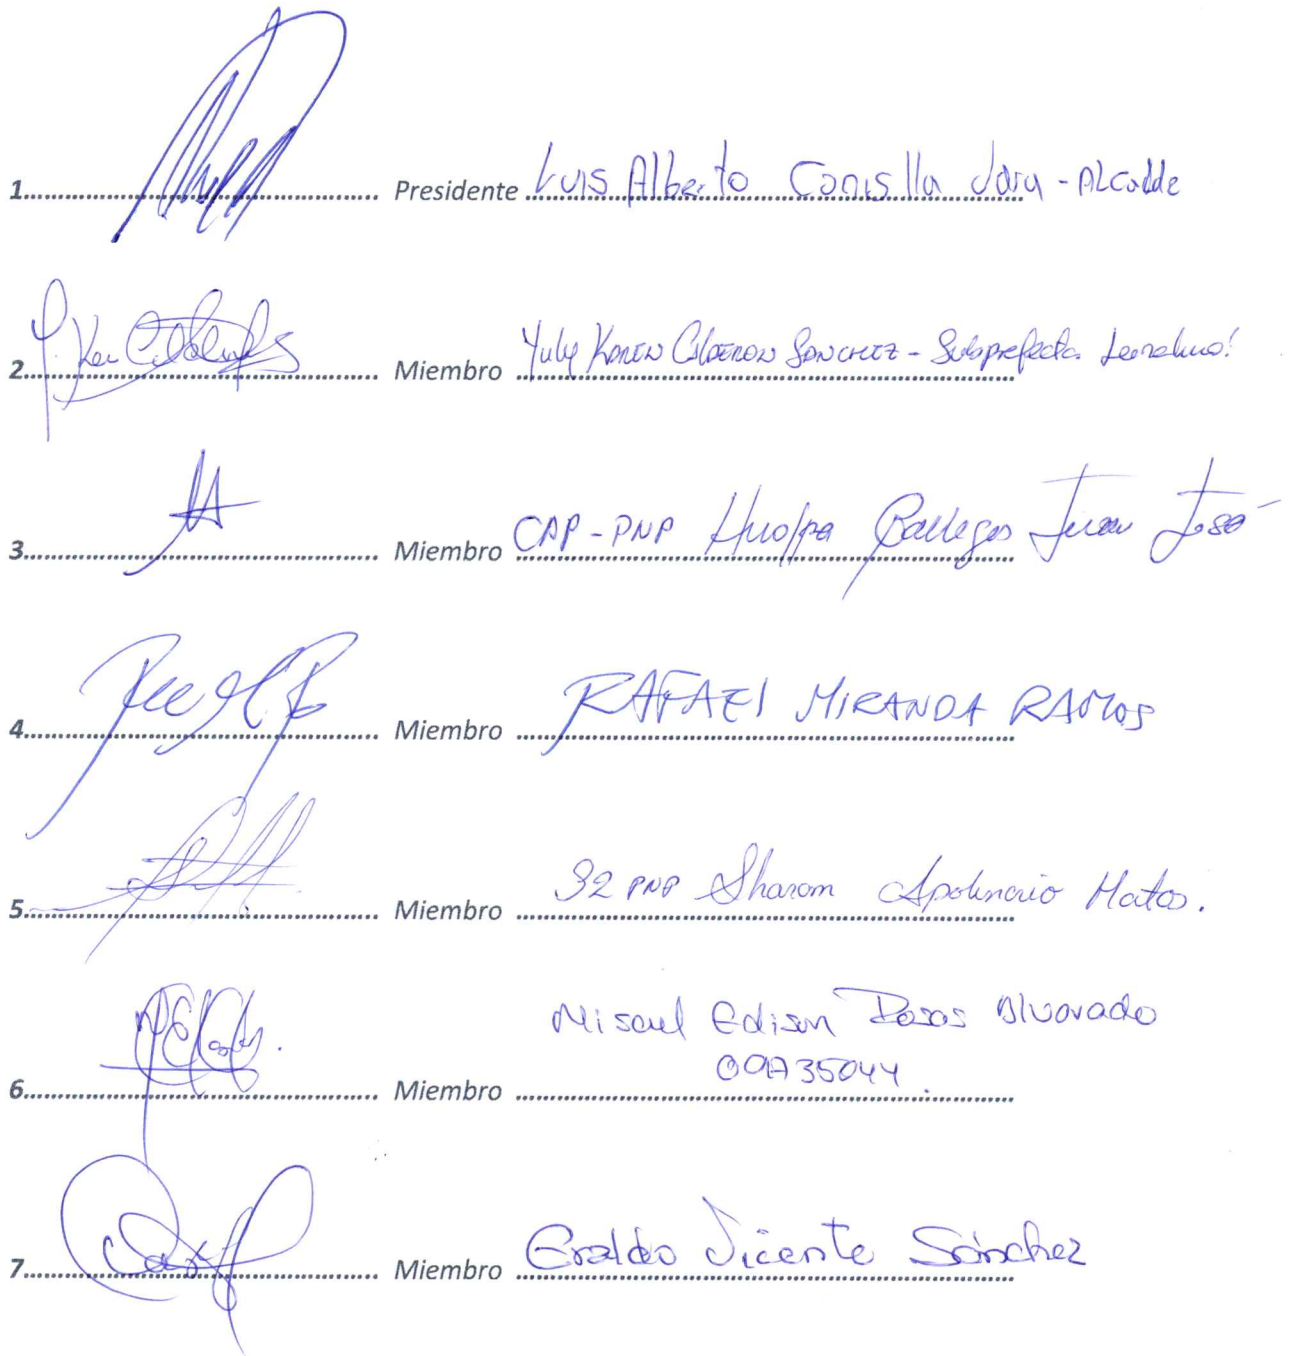 1. Presidente Luis Alberto Conislla Jara - Alcalde
2. Miembro Yuly Karen Calderon Sanchez - Subprefecta
3. Miembro CAP - PNP Huallpa Gallegos Juan José
4. Miembro RAFAEl MIRANDA RAMOS
5. Miembro S2 PNP Sharom Apolinario Matos.
Misael Edison Rosas Alvarado
09735044.
6. Miembro
7. Miembro Eraldo Vicente Sánchez